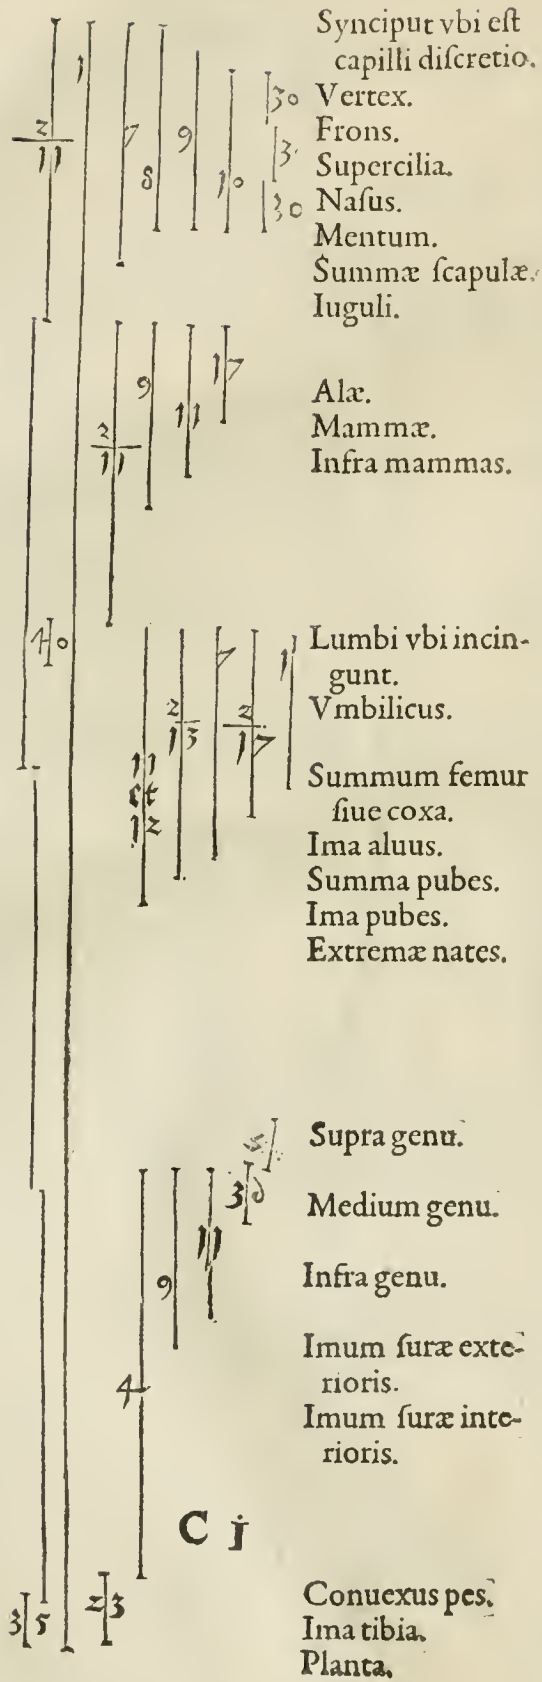 Synciput vbi eſt
capilli diſcretio.
Vertex.
Frons.
Supercilia.
Naſus.
Mentum.
Summæ ſcapulæ.
Iuguli.
1
2
11
7
8
9
10
30
3
30
Alæ.
Mammæ.
Infra mammas.
2
11
9
11
17
Lumbi vbi incin-
gunt.
Vmbilicus.
Summum femur
ſiue coxa.
Ima aluus.
Summa pubes.
Ima pubes.
Extremæ nates.
40
11
et
12
2
13
7
2
17
1
Supra genu.
Medium genu.
Infra genu.
Imum ſuræ exte-
rioris.
Imum ſuræ inte-
rioris.
4
9
11
3
C j
Conuexus pes.
Ima tibia.
Planta.
35
23